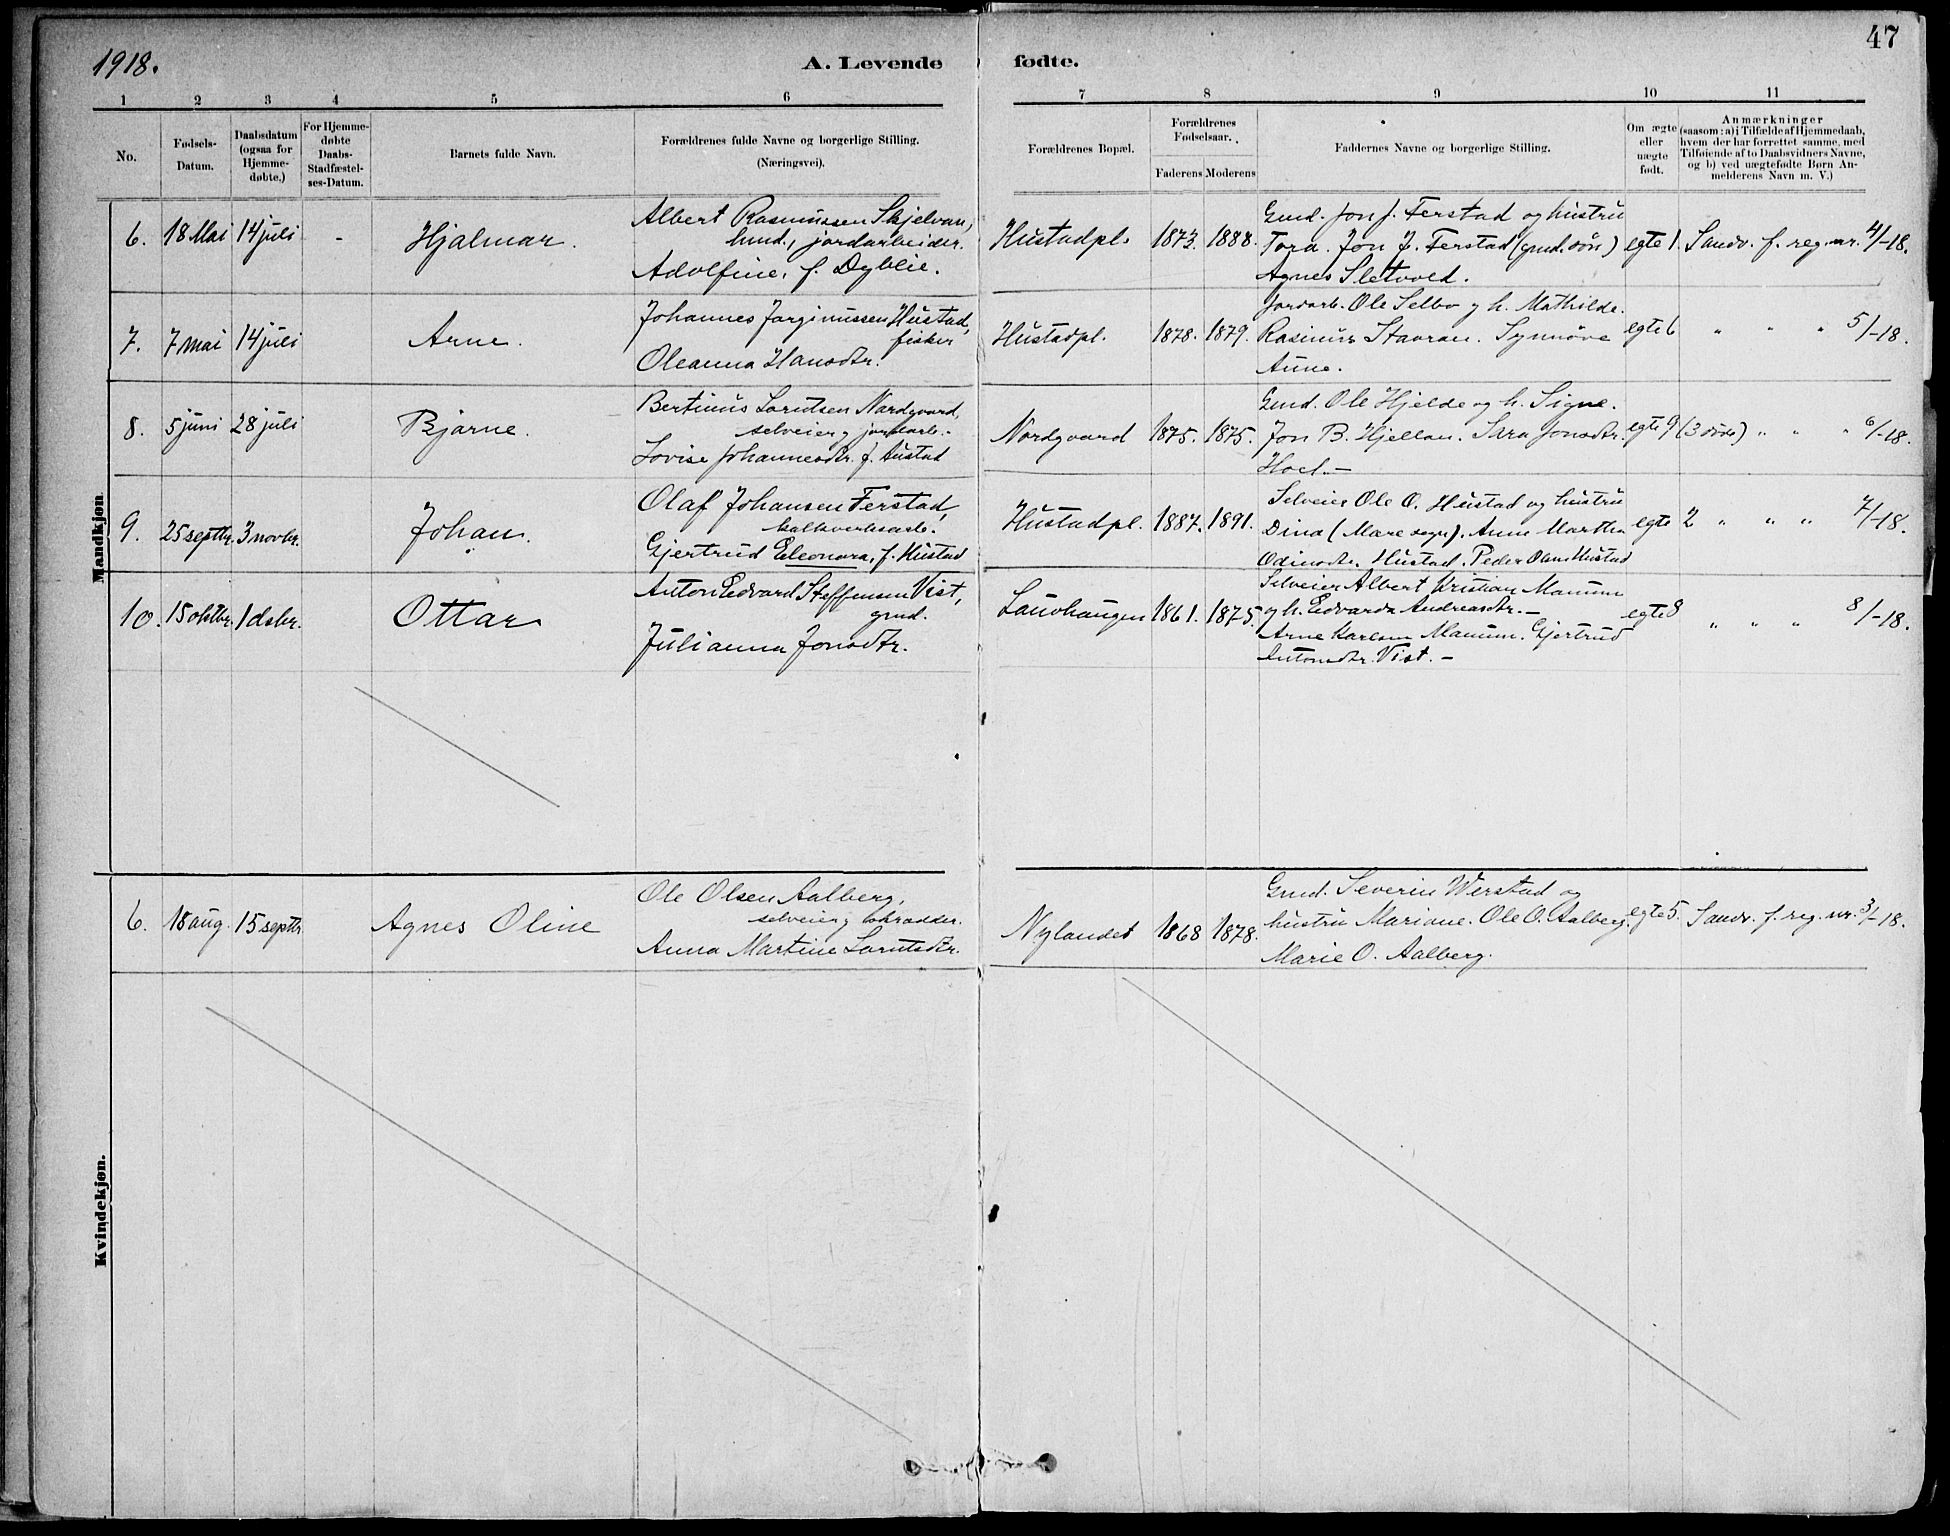 1918.
A. Levende fødte.
47
1 2 3 4 5 6 7 8 9 10 11
No.
Fødsels-
Datum.
Daabsdatum
(ogsaa for
Hjemme-
døbte.)
For Hjemme-
døbte
Daabs-
Stadfæstel-
ses-Datum.
Barnets fulde Navn.
Forældrenes fulde Navne og borgerlige Stilling.
(Næringsvei).
Forældrenes Bopæl.
Forældrenes
Fødselsaar.
Faderens Moderens
Faddernes Navne og borgerlige Stilling.
Om ægte
eller
uægte
født.
Anmærkninger
(saasom: a) i Tilfælde af Hjemmedaab,
hvem der har forrettet samme, med
Tilføiende af to Daabsvidners Navne,
og b) ved uægtefødte Børn An-
melderens Navn m. V.)
Mandkjøn
6. 18 Mai 14 juli - Hjalmar.
Albert Rasmussen Skjelvan,
hmd., jordarbeider.
Adolfine, f. Dyblie.
Hustadpl. 1873. 1888.
Gmd. Jon J. Ferstad og hustru
Tora. Jon J. Ferstad (gmd. søn)
Agnes Sletvold.
egte 1. Sandv. f. reg. nr. 4/-18.
7. 7 mai 14 juli Arne.
Johannes Jørginussen Hustad,
fisker
Oleanna Hansdtr.
Hustadpl. 1878. 1879.
Jordarb. Ole Selbo og h. Mathilde.
Rasinus Stavran. Synnöve
Aune.
egte 6 " " " 5/-18.
8. 5 juni 28 juli Bjarne.
Bertinus Lorntsen Nordgaard,
selveier og jordarb.
Lovise Johannesdtr. f. Hustad
Nordgaard 1875. 1875.
Gmd. Ole Hjelde og h. Signe.
Jon B. Hjellan. Sara Jonsdtr.
Hoel. -
egte 9 (3 døde) " " " 6/-18.
9. 25 septbr. 3 novbr. Johan.
Olaf Johansen Ferstad,
kalkverksarb.
Gjertrud Eleonora, f. Hustad
Hustadpl. 1887. 1891.
Selveier Ole O. Hustad og hustru
Dina (Mare sogn). Anna Martha
Odinsdtr. Hustad. Peder Olsen Hustad
egte 2 " " " 7/-18.
10. 15 oktbr. 1 dsbr. Ottar
Anton Edvard Steffensen Vist,
gmd.
Julianna Jonsdtr.
Lauvhaugen 1861. 1875.
Selveier Albert Kristian Manum
og h. Edvarda Andreasdtr. -
Arne Karlsen Manum. Gjertrud
Antonsdtr. Vist. -
egte 8 " " " 8/-18.
Kvindekjøn.
6. 18 aug. 15 septbr. Agnes Oline
Ole Olsen Aalberg,
selveier og skrædder.
Anna Martine Lorntsdtr.
Nylandet 1868 1878.
Gmd. Severin Werstad og
hustru Mariane. Ole O. Aalberg.
Marie O. Aalberg.
egte 5. Sandv. f. reg. nr. 3/-18.